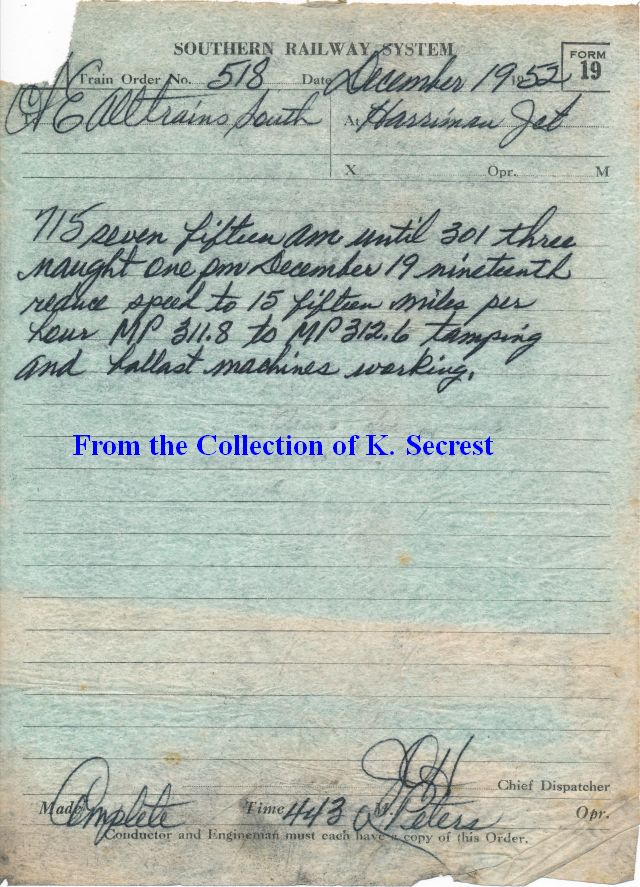 SOUTHERN RAILWAY SYSTEM
FORM 19
Train Order No. 518 Date December 19 1952
C&E All trains South At Harriman Jct
X Opr. M
715 seven fifteen am until 301 three
naught one pm December 19 nineteenth
reduce speed to 15 fifteen miles per
hour MP 311.8 to MP 312.6 tamping
and ballast machines working.
From the Collection of K. Secrest
Chief Dispatcher
Made Complete Time 443 Peters Opr.
Conductor and Engineman must each have a copy of this Order.